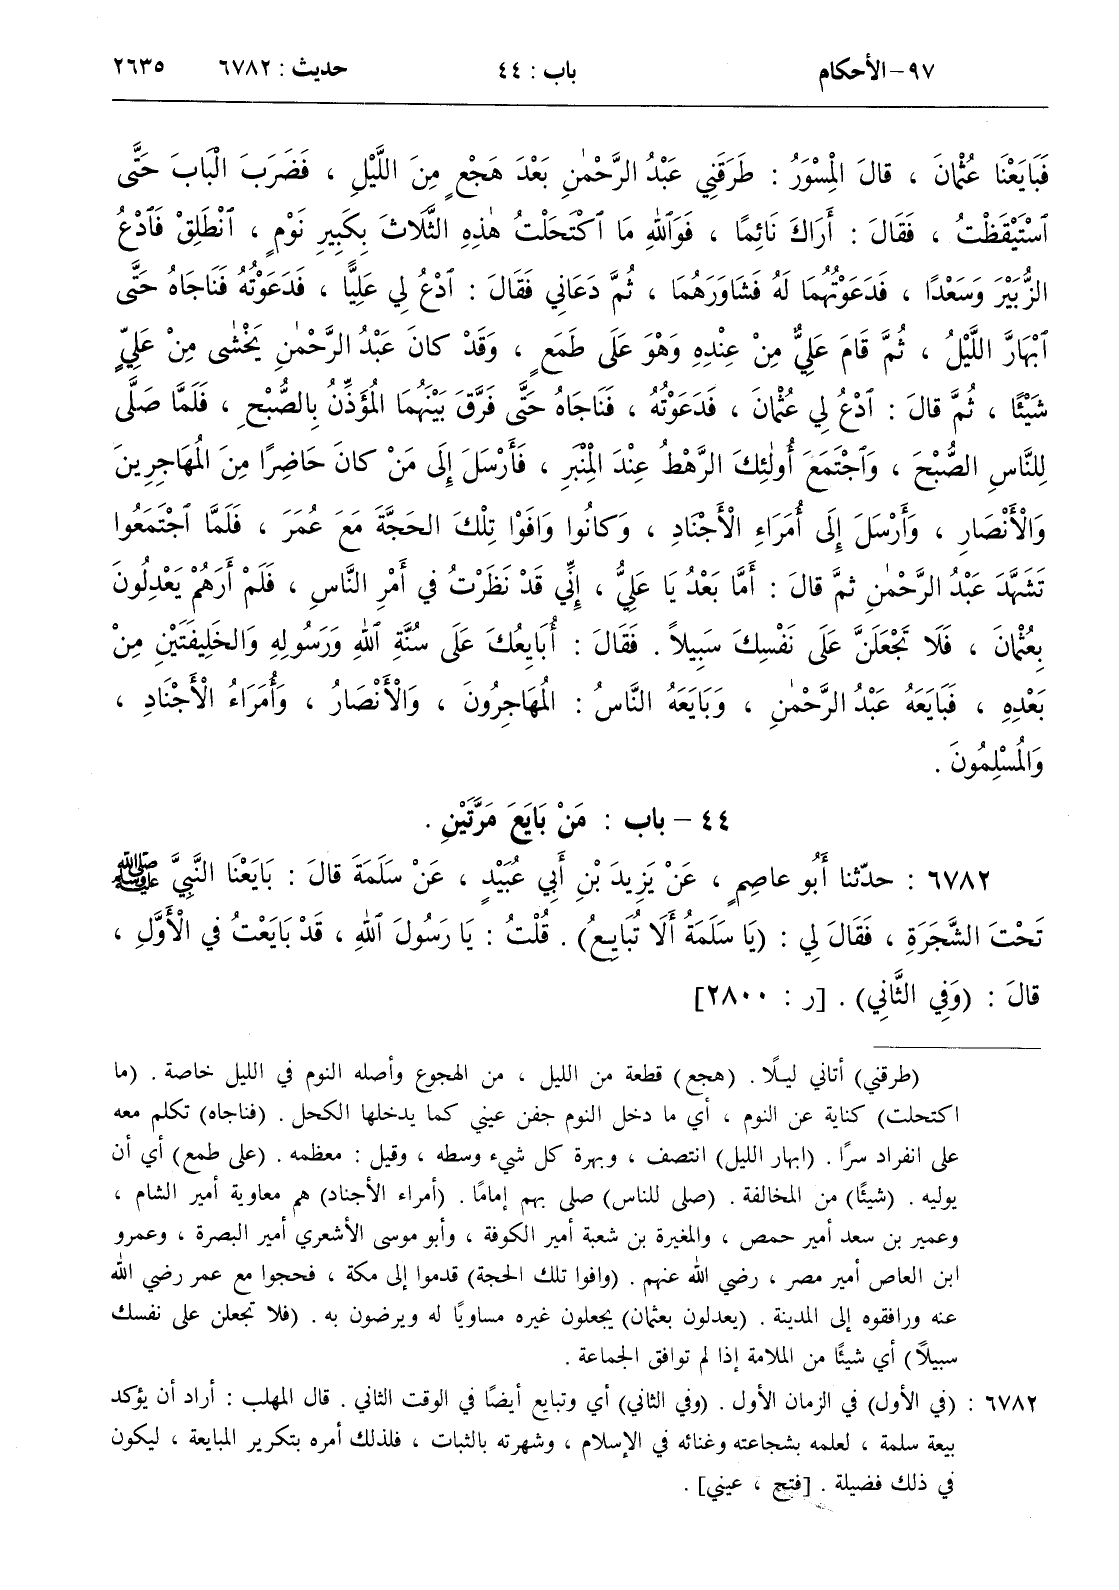 ٩٧ - الأحكام باب : ٤٤ حديث : ٦٧٨٢ ٢٦٣٥
فَبَايَعْنَا عُثْمَانَ ، قالَ الْمِسْوَرُ : طَرَقَنِي عَبْدُ الرَّحْمٰنِ بَعْدَ هَجْعٍ مِنَ اللَّيْلِ ، فَضَرَبَ الْبَابَ حَتَّى
ٱسْتَيْقَظْتُ ، فَقَالَ : أَرَاكَ نَائِمًا ، فَوَٱللهِ مَا ٱكْتَحَلْتُ هٰذِهِ الثَّلَاثَ بِكَبِيرِ نَوْمٍ ، ٱنْطَلِقْ فَٱدْعُ
الزُّبَيْرَ وَسَعْدًا ، فَدَعَوْتُهُمَا لَهُ فَشَاوَرَهُمَا ، ثُمَّ دَعَانِي فَقَالَ : ٱدْعُ لِي عَلِيًّا ، فَدَعَوْتُهُ فَنَاجَاهُ حَتَّى
ٱبْهَارَّ اللَّيْلُ ، ثُمَّ قامَ عَلِيٌّ مِنْ عِنْدِهِ وَهْوَ عَلَى طَمَعٍ ، وَقَدْ كانَ عَبْدُ الرَّحْمٰنِ يَخْشٰى مِنْ عَلِيٍّ
شَيْئًا ، ثُمَّ قالَ : ٱدْعُ لِي عُثْمَانَ ، فَدَعَوْتُهُ ، فَنَاجَاهُ حَتَّى فَرَّقَ بَيْنَهُمَا الْمُؤَذِّنُ بِالصُّبْحِ ، فَلَمَّا صَلَّى
لِلنَّاسِ الصُّبْحَ ، وَٱجْتَمَعَ أُولٰئِكَ الرَّهْطُ عِنْدَ الْمِنْبَرِ ، فَأَرْسَلَ إِلَى مَنْ كانَ حَاضِرًا مِنَ الْمُهَاجِرِينَ
وَالْأَنْصَارِ ، وَأَرْسَلَ إِلَى أُمَرَاءِ الْأَجْنَادِ ، وَكانُوا وَافَوْا تِلْكَ الحَجَّةَ مَعَ عُمَرَ ، فَلَمَّا ٱجْتَمَعُوا
تَشَهَّدَ عَبْدُ الرَّحْمٰنِ ثمَّ قالَ : أَمَّا بَعْدُ يَا عَلِيُّ ، إِنِّي قَدْ نَظَرْتُ في أَمْرِ النَّاسِ ، فَلَمْ أَرَهُمْ يَعْدِلُونَ
بِعُثْمَانَ ، فَلَا تَجْعَلَنَّ عَلَى نَفْسِكَ سَبِيلاً . فَقَالَ : أُبَايِعُكَ عَلَى سُنَّةِ ٱللهِ وَرَسُولِهِ وَالخَلِيفَتَيْنِ مِنْ
بَعْدِهِ ، فَبَايَعَهُ عَبْدُ الرَّحْمٰنِ ، وَبَايَعَهُ النَّاسُ : الْمُهَاجِرُونَ ، وَالْأَنْصَارُ ، وَأُمَرَاءُ الْأَجْنَادِ ،
وَالْمُسْلِمُونَ .
٤٤ - باب : مَنْ بَايَعَ مَرَّتَيْنِ .
٦٧٨٢ : حدّثنا أَبُو عاصِمٍ ، عَنْ يَزِيدَ بْنِ أَبِي عُبَيْدٍ ، عَنْ سَلَمَةَ قالَ : بَايَعْنَا النَّبِيَّ ﷺ
تَحْتَ الشَّجَرَةِ ، فَقَالَ لِي : (يَا سَلَمَةُ أَلَا تُبَايِعُ) . قُلْتُ : يَا رَسُولَ ٱللهِ ، قَدْ بَايَعْتُ في الْأَوَّلِ ،
قالَ : (وَفِي الثَّانِي) . [ر : ٢٨٠٠]
(طرقني) أتاني ليلًا . (هجع) قطعة من الليل ، من الهجوع وأصله النوم في الليل خاصة . (ما
اكتحلت) كناية عن النوم ، أي ما دخل النوم جفن عيني كما يدخلها الكحل . (فناجاه) تكلم معه
على انفراد سرًا . (ابهار الليل) انتصف ، وبهرة كل شيء وسطه ، وقيل : معظمه . (على طمع) أي أن
يوليه . (شيئًا) من المخالفة . (صلى للناس) صلى بهم إمامًا . (أمراء الأجناد) هم معاوية أمير الشام ،
وعمير بن سعد أمير حمص ، والمغيرة بن شعبة أمير الكوفة ، وأبو موسى الأشعري أمير البصرة ، وعمرو
ابن العاص أمير مصر ، رضي الله عنهم . (وافوا تلك الحجة) قدموا إلى مكة ، فحجوا مع عمر رضي الله
عنه ورافقوه إلى المدينة . (يعدلون بعثمان) يجعلون غيره مساويًا له ويرضون به . (فلا تجعلن على نفسك
سبيلاً) أي شيئًا من الملامة إذا لم توافق الجماعة .
٦٧٨٢ : (في الأول) في الزمان الأول . (وفي الثاني) أي وتبايع أيضًا في الوقت الثاني . قال المهلب : أراد أن يؤكد
بيعة سلمة ، لعلمه بشجاعته وغنائه في الإسلام ، وشهرته بالثبات ، فلذلك أمره بتكرير المبايعة ، ليكون
في ذلك فضيلة . [فتح ، عيني] .